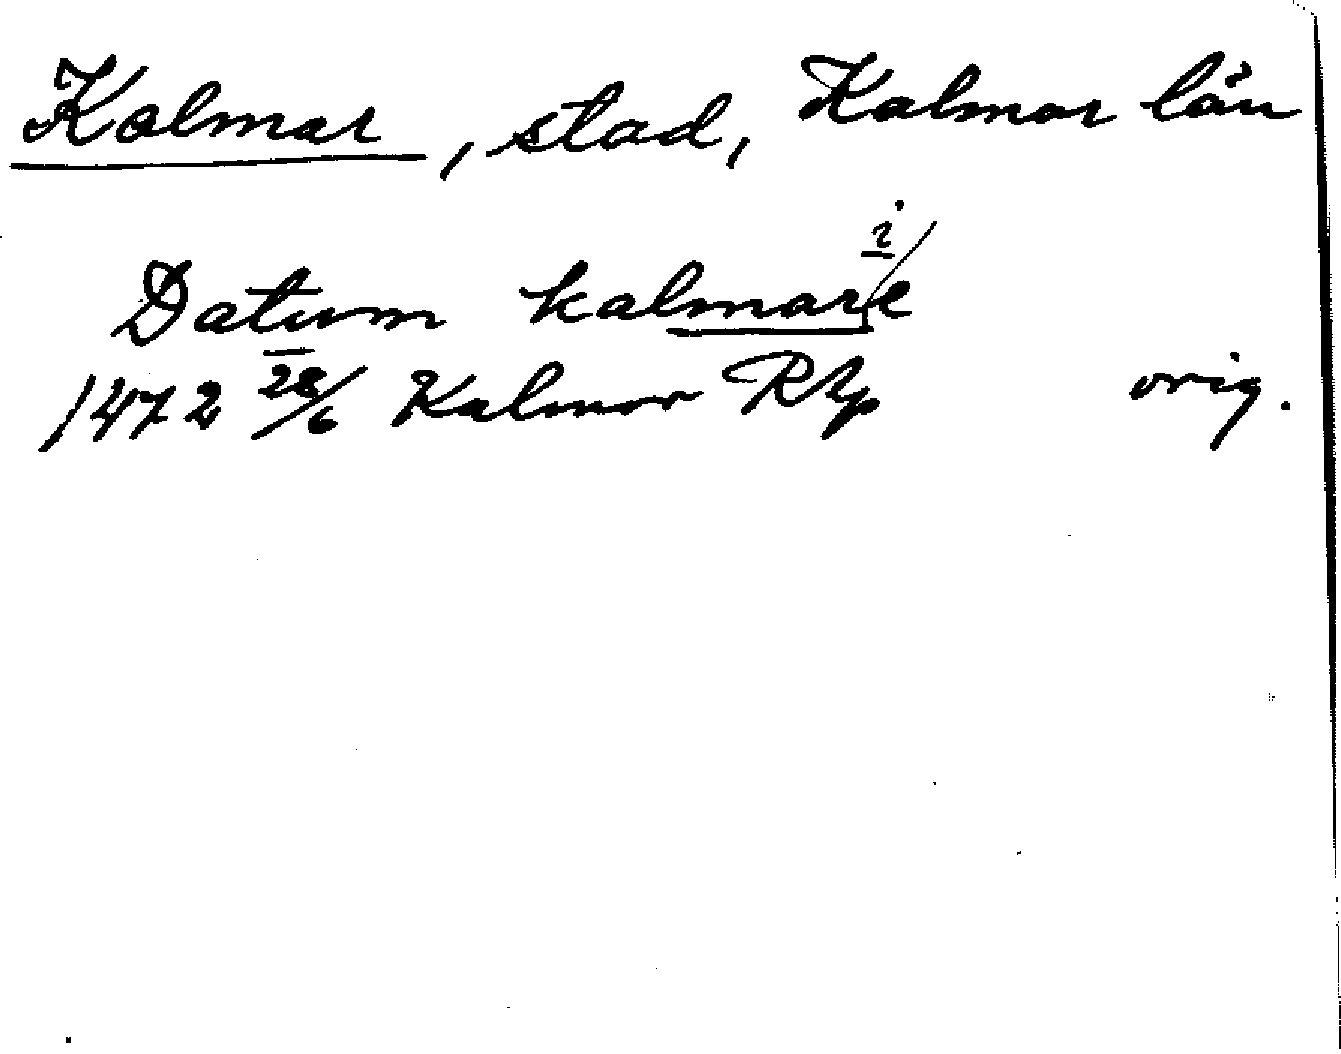 Kalmar, stad, Kalmar län
Datum kalmarie
1472 28/6 Kalmar RAp orig.